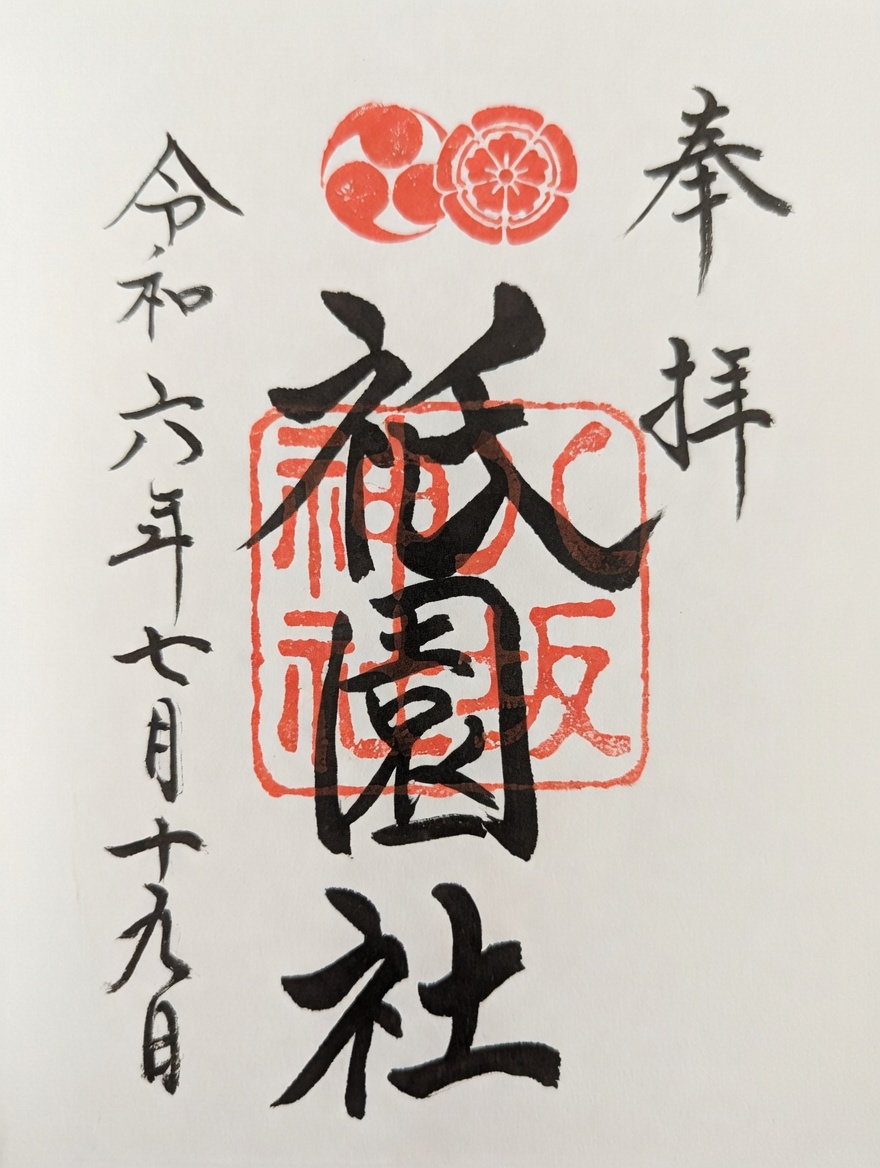 奉拝
祇園社
八坂
神社
令和六年七月十九日